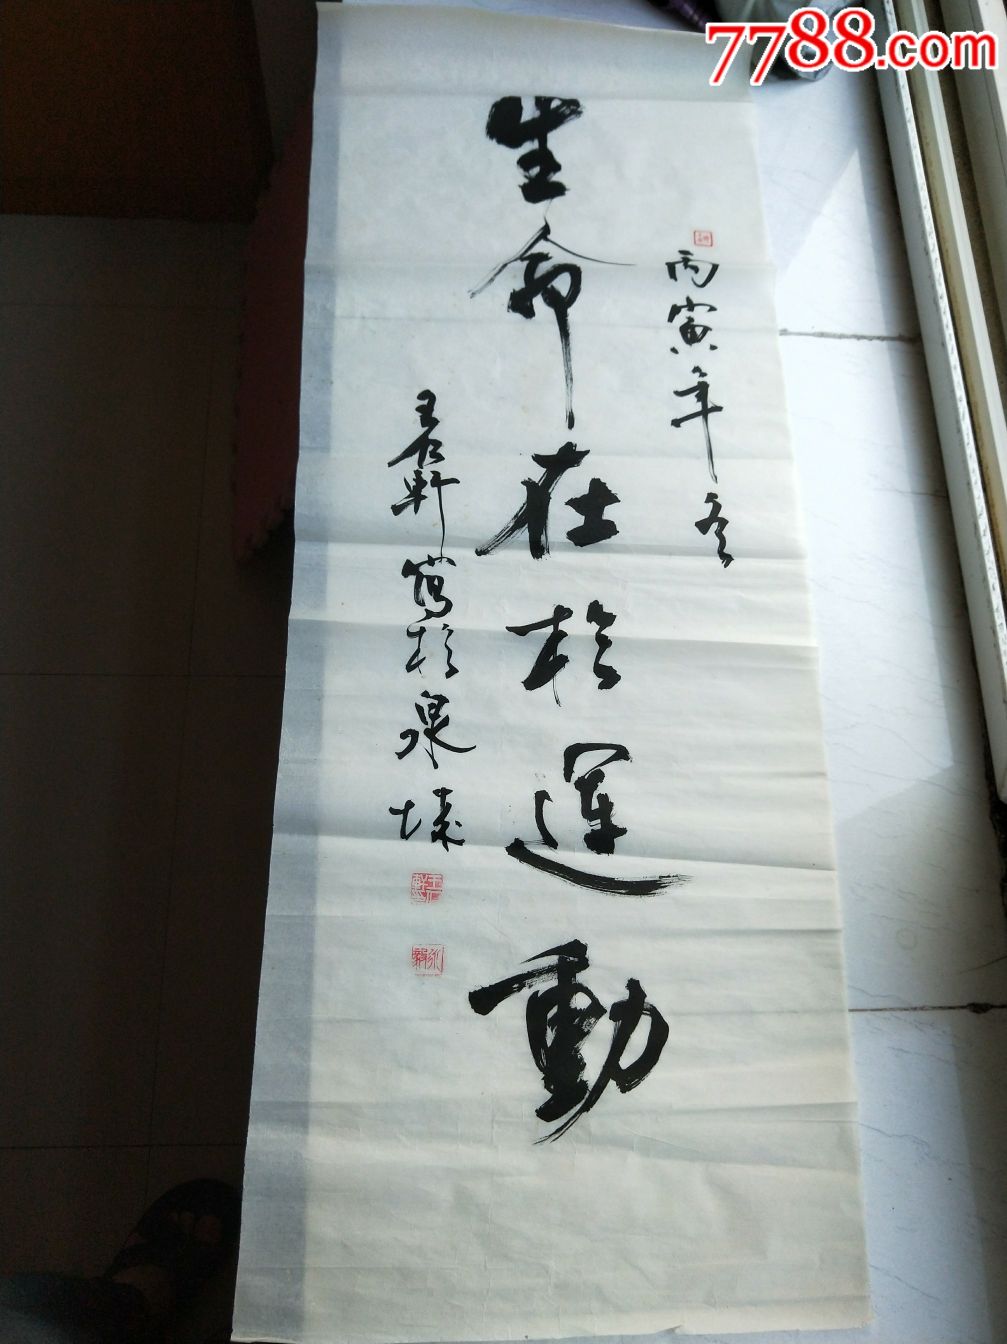 7788.com
丙寅年冬
生命在於運動
王君軒寫於泉城